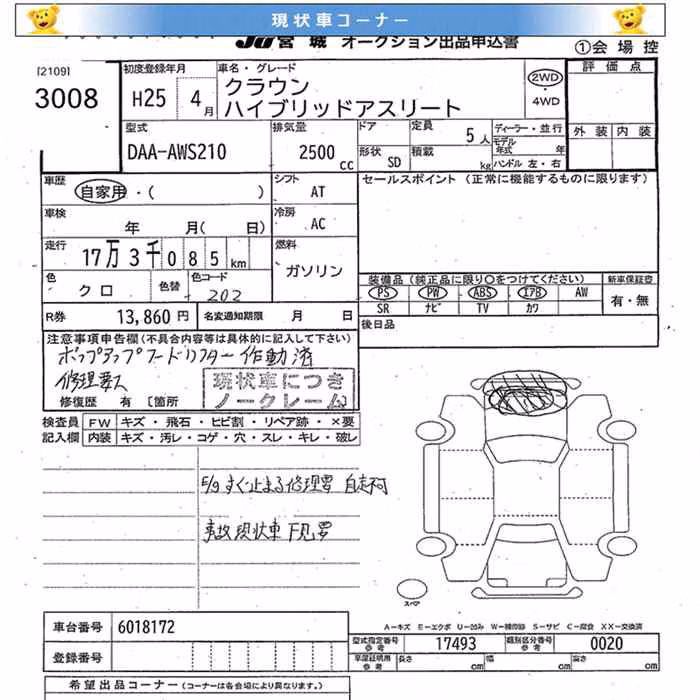 現状車コーナー
JU宮城 オークション出品申込書
①会場控
[2109]
3008
初度登録年月
H25 4月
車名・グレード
クラウン
ハイブリッドアスリート
2WD
・
4WD
評価点
外装 内装
型式
DAA-AWS210
排気量
2500 cc
ドア
形状 SD
定員 5人
積載 kg
ディーラー・並行
モデル年式 年
ハンドル 左・右
車歴
自家用・( )
シフト
AT
セールスポイント (正常に機能するものに限ります)
車検
年 月( 日)
冷房
AC
走行
17万3千085km
燃料
ガソリン
色
クロ
色替
色コード
202
装備品(純正品に限り○をつけてください)
新車保証書
PS PW ABS エアB AW
SR ナビ TV カワ
有・無
R券 13,860円
名変通知期限 月 日
後日品
注意事項申告欄(不具合内容等は具体的に記入して下さい)
ポップアップフードリフター作動済
修理要ス
現状車につき
ノークレーム
修復歴 有 〔箇所
検査員記入欄
FW キズ・飛石・ヒビ割・リペア跡・×要
内装 キズ・汚レ・コゲ・穴・スレ・キレ・破レ
E/gすぐ止まる修理要 自走不可
事故現状車下見要
スペア
A-キズ E-エクボ U-凹み W-補修跡 S-サビ C-腐食 XX-交換済
車台番号 6018172
登録番号
型式指定番号参考 17493
類別区分番号参考 0020
車庫証明用参考 長さ cm 幅 cm 高さ cm
希望出品コーナー (コーナーは各会場により異なります。)